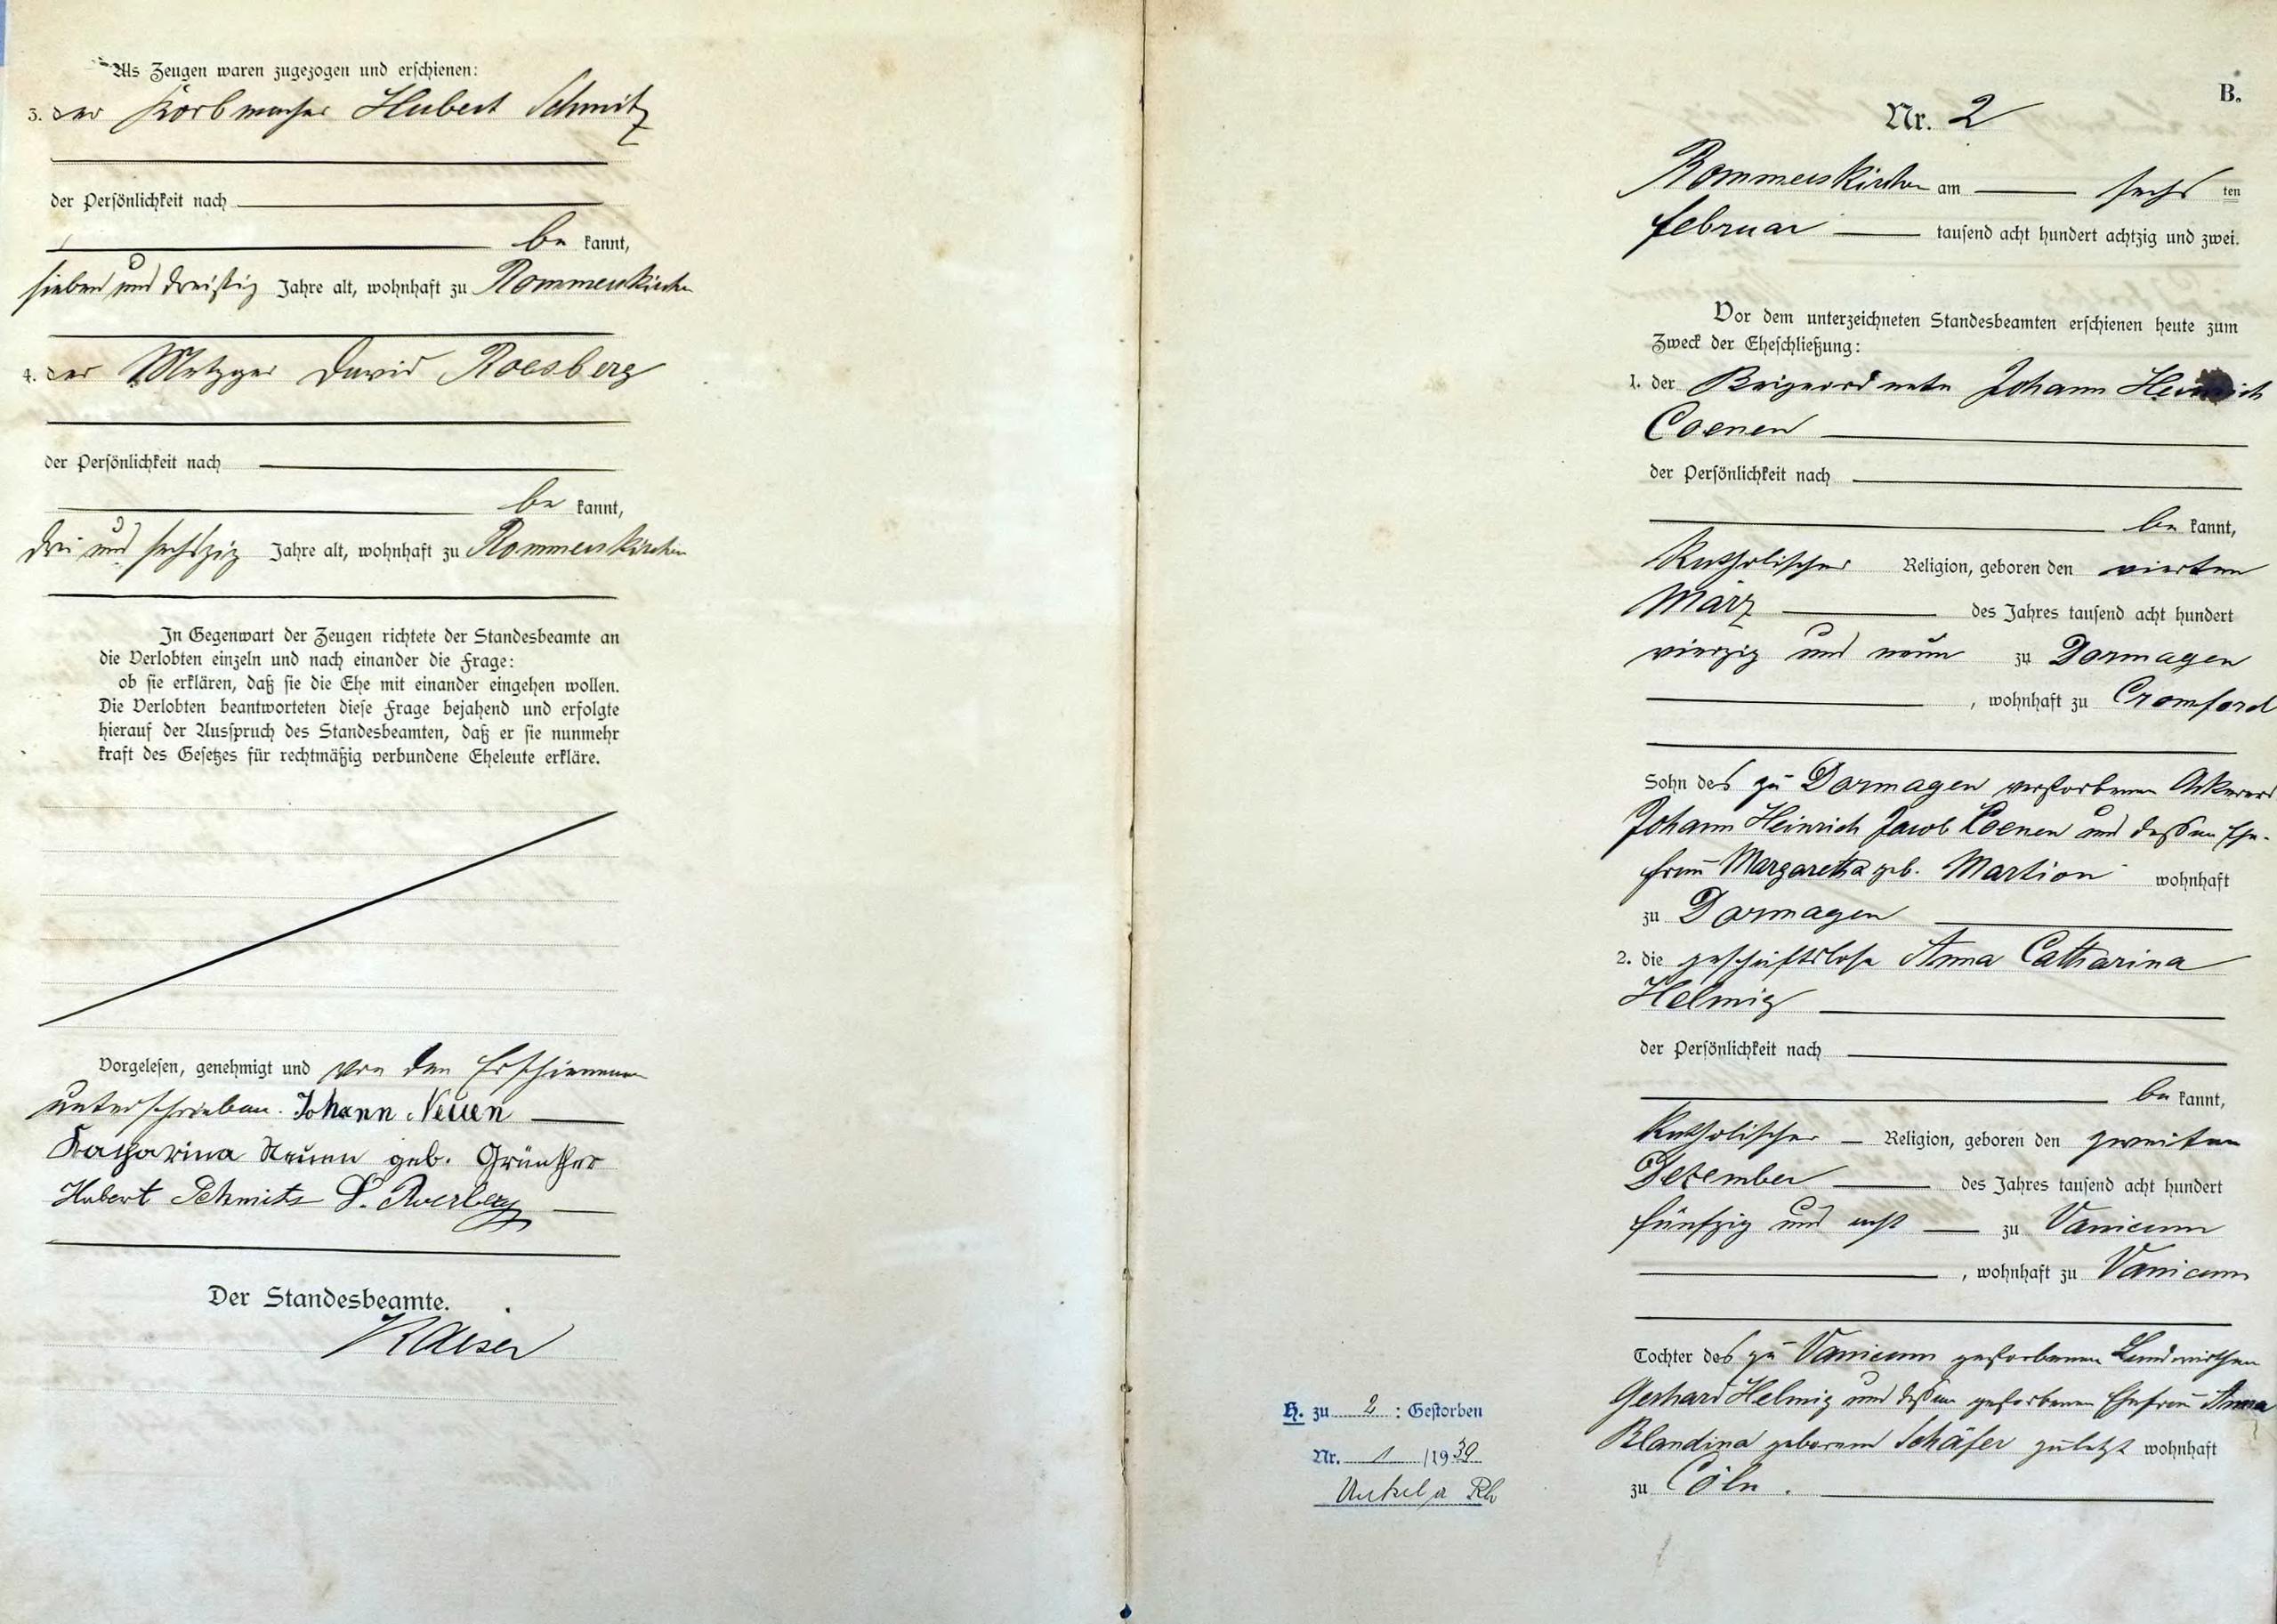 Als Zeugen waren zugezogen und erschienen:
3. der Korbmacher Hubert Schmitz
der Persönlichkeit nach
be kannt,
sieben und dreißig Jahre alt, wohnhaft zu Rommerskirchen
4. der Metzger David Roesberg
der Persönlichkeit nach
be kannt,
drei und sechszig Jahre alt, wohnhaft zu Rommerskirchen
In Gegenwart der Zeugen richtete der Standesbeamte an
die Verlobten einzeln und nach einander die Frage:
ob sie erklären, daß sie die Ehe mit einander eingehen wollen.
Die Verlobten beantworteten diese Frage bejahend und erfolgte
hierauf der Ausspruch des Standesbeamten, daß er sie nunmehr
kraft des Gesetzes für rechtmäßig verbundene Eheleute erkläre.
Vorgelesen, genehmigt und von den Erschienenen
unterschrieben. Johann Neuen
Katharina Neuen geb. Grünther
Hubert Schmitz D. Roesberg
Der Standesbeamte.
Kaiser
B.
Nr. 2
Rommerskirchen am sechs ten
Februar tausend acht hundert achtzig und zwei.
Vor dem unterzeichneten Standesbeamten erschienen heute zum
Zweck der Eheschließung:
1. der Beigeordnete Johann Heinrich
Coenen
der Persönlichkeit nach
be kannt,
katholischer Religion, geboren den vierten
März des Jahres tausend acht hundert
vierzig und neun zu Dormagen
, wohnhaft zu Cromford
Sohn des zu Dormagen verstorbenen Ackerers
Johann Heinrich Jacob Coenen und dessen Ehe-
frau Margaretha geb. Martion wohnhaft
zu Dormagen
2. die geschäftslose Anna Catharina
Helmig
der Persönlichkeit nach
be kannt,
katholischer Religion, geboren den zweiten
Dezember des Jahres tausend acht hundert
fünfzig und acht zu Vanicum
, wohnhaft zu Vanicum
Tochter des zu Vanicum gestorbenen Landwirthen
Gerhard Helmig und dessen gestorbenen Ehefrau Anna
Blandina geborene Schäfer zuletzt wohnhaft
zu Cöln.
H. zu 2 : Gestorben
Nr. 1 /1939
Unkel a Rh